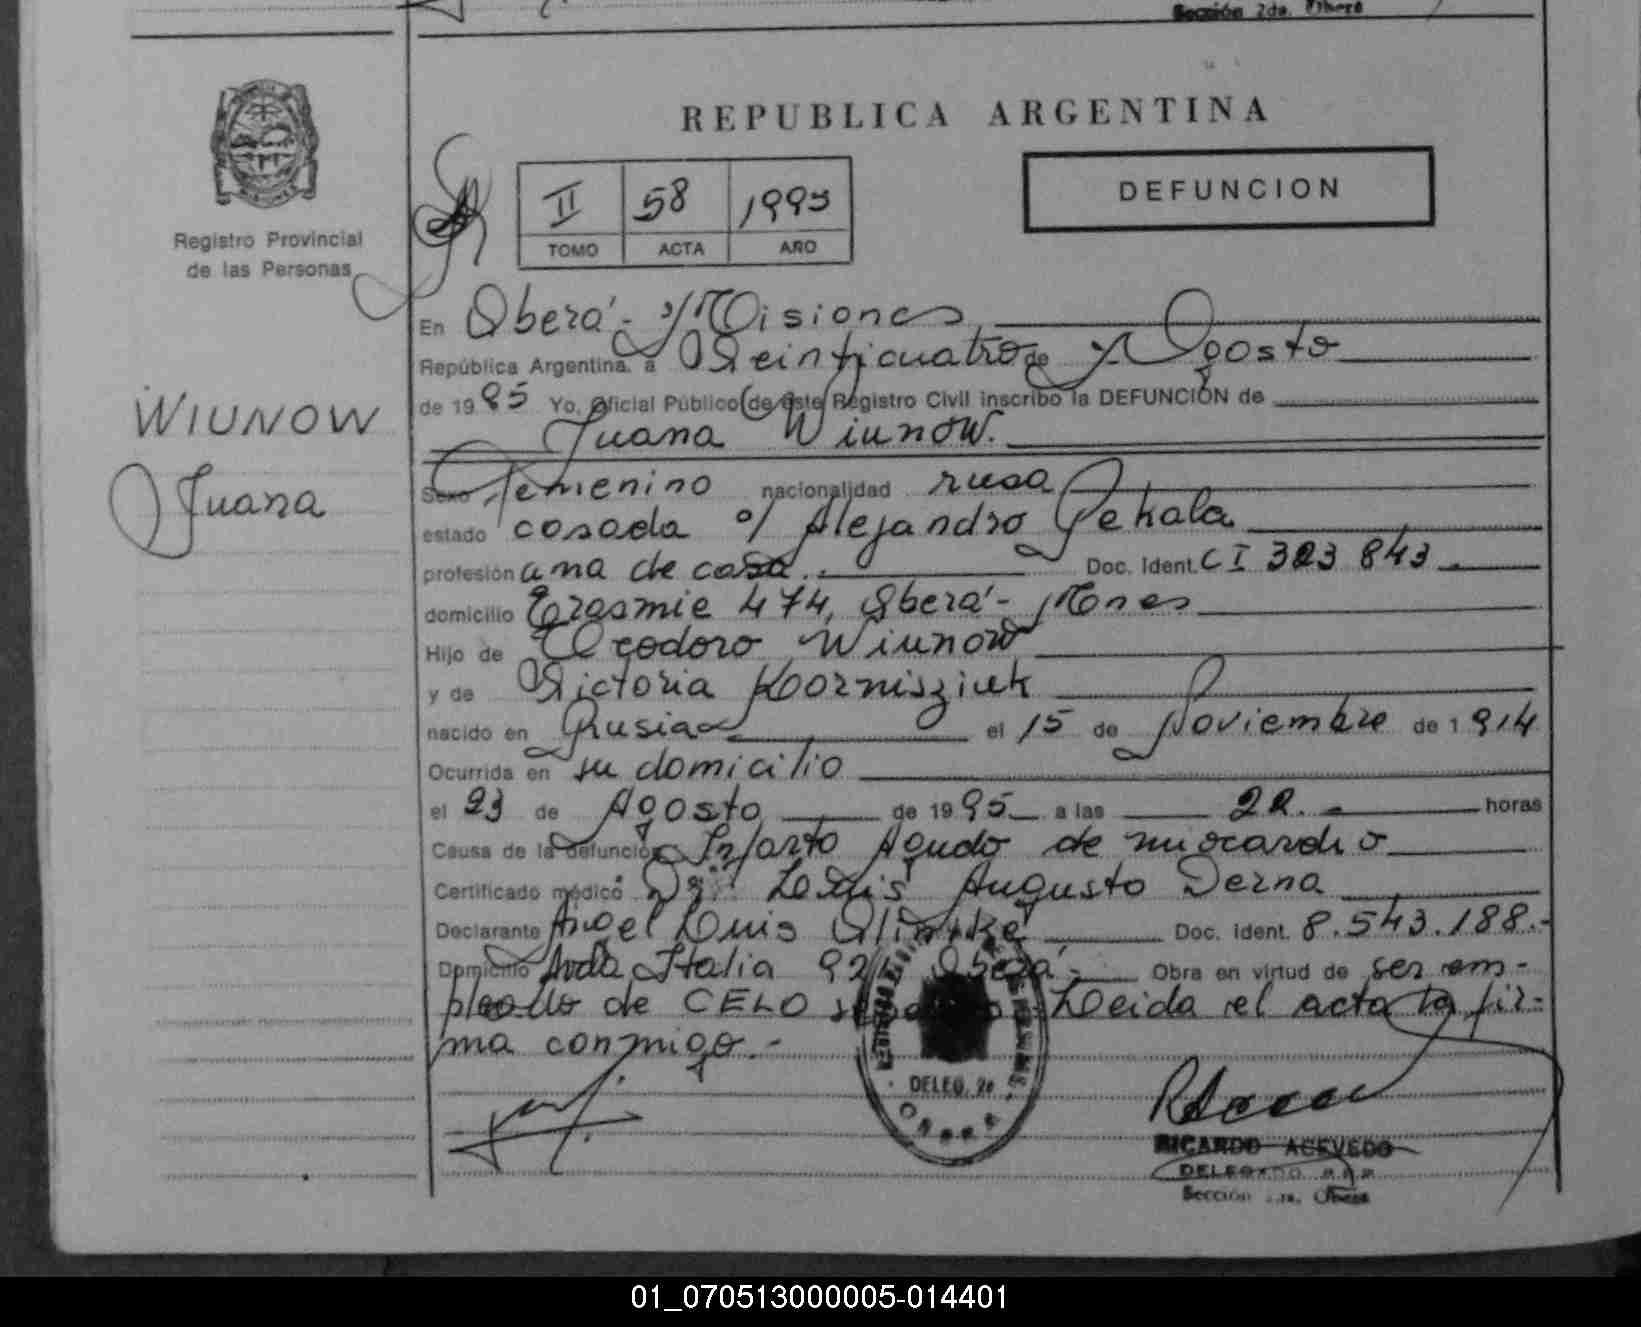 Sección 2da. Oberá
REPUBLICA ARGENTINA
II 58 1995
TOMO ACTA AÑO
DEFUNCION
Registro Provincial
de las Personas
WIUNOW
Juana
En Oberá - Misiones
República Argentina, a Veinticuatro de Agosto
de 1995 Yo, Oficial Público de este Registro Civil inscribo la DEFUNCIÓN de
Juana Wiunow.
Sexo Femenino nacionalidad rusa
estado casada c/ Alejandro Pekala
profesión ama de casa. Doc. Ident. CI 323 843
domicilio Erasmie 474, Oberá - Mnes
Hijo de Teodoro Wiunow
y de Victoria Kornisziuk
nacido en Rusia el 15 de Noviembre de 1914
Ocurrida en su domicilio
el 23 de Agosto de 1995 a las 22. horas
Causa de la defunción Infarto Agudo de miocardio
Certificado médico Dr. Luis Augusto Derna
Declarante Angel Luis Doc. Ident. 8.543.188.-
Domicilio Avda Italia Oberá - Obra en virtud de ser em-
pleado de CELO Leida el acta la fir-
ma conmigo.-
DELEG. 2a
OBERA
RICARDO ACEVEDO
DELEGADO R.R.P.
Sección 2da. Oberá
01_070513000005-014401